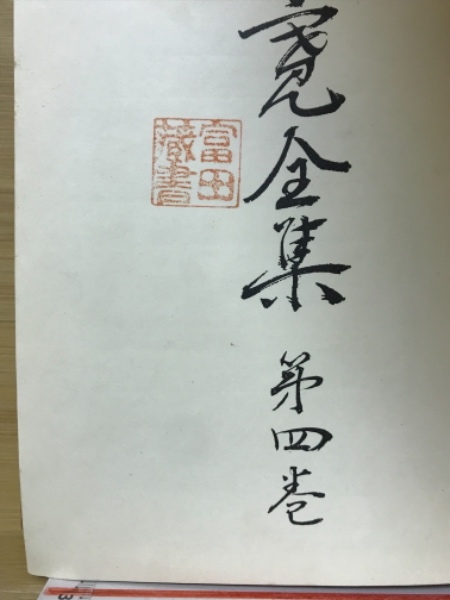 寛全集
第四巻
富田
蔵書